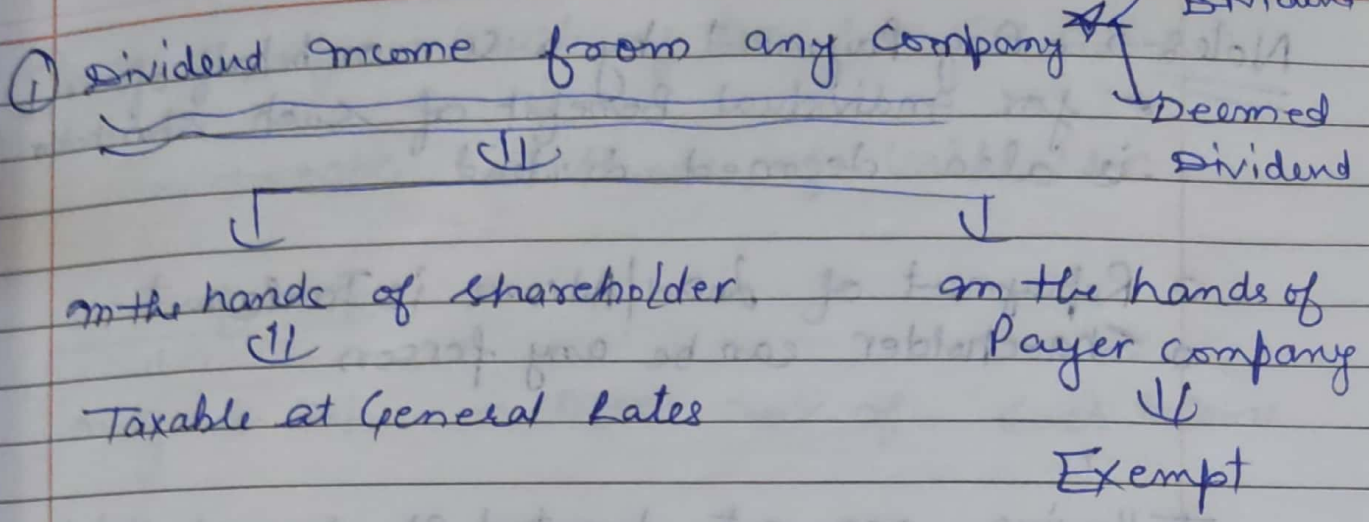 ① Dividend Income from any Company
Deemed
Dividend
In the hands of shareholder
Taxable at General Rates
In the hands of
Payer Company
Exempt